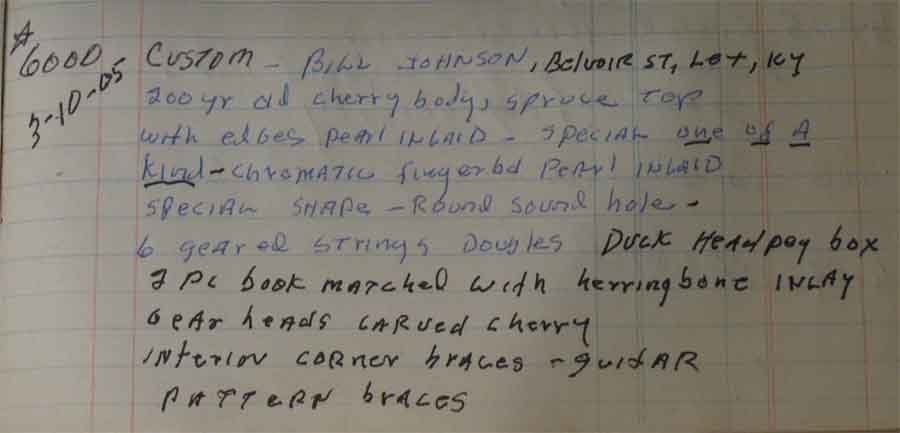 A
6000 Custom - Bill Johnson, Belvoir St, Lex, Ky
3-10-05
200 yr old cherry body, spruce top
with edges pearl inlaid - special one of a
kind - chromatic fingerbd pearl inlaid
special shape - Round sound hole -
6 geared strings Doubles Duck Head peg box
2 pc book matched with herringbone inlay
Gear heads carved cherry
interior corner braces - guitar
pattern braces